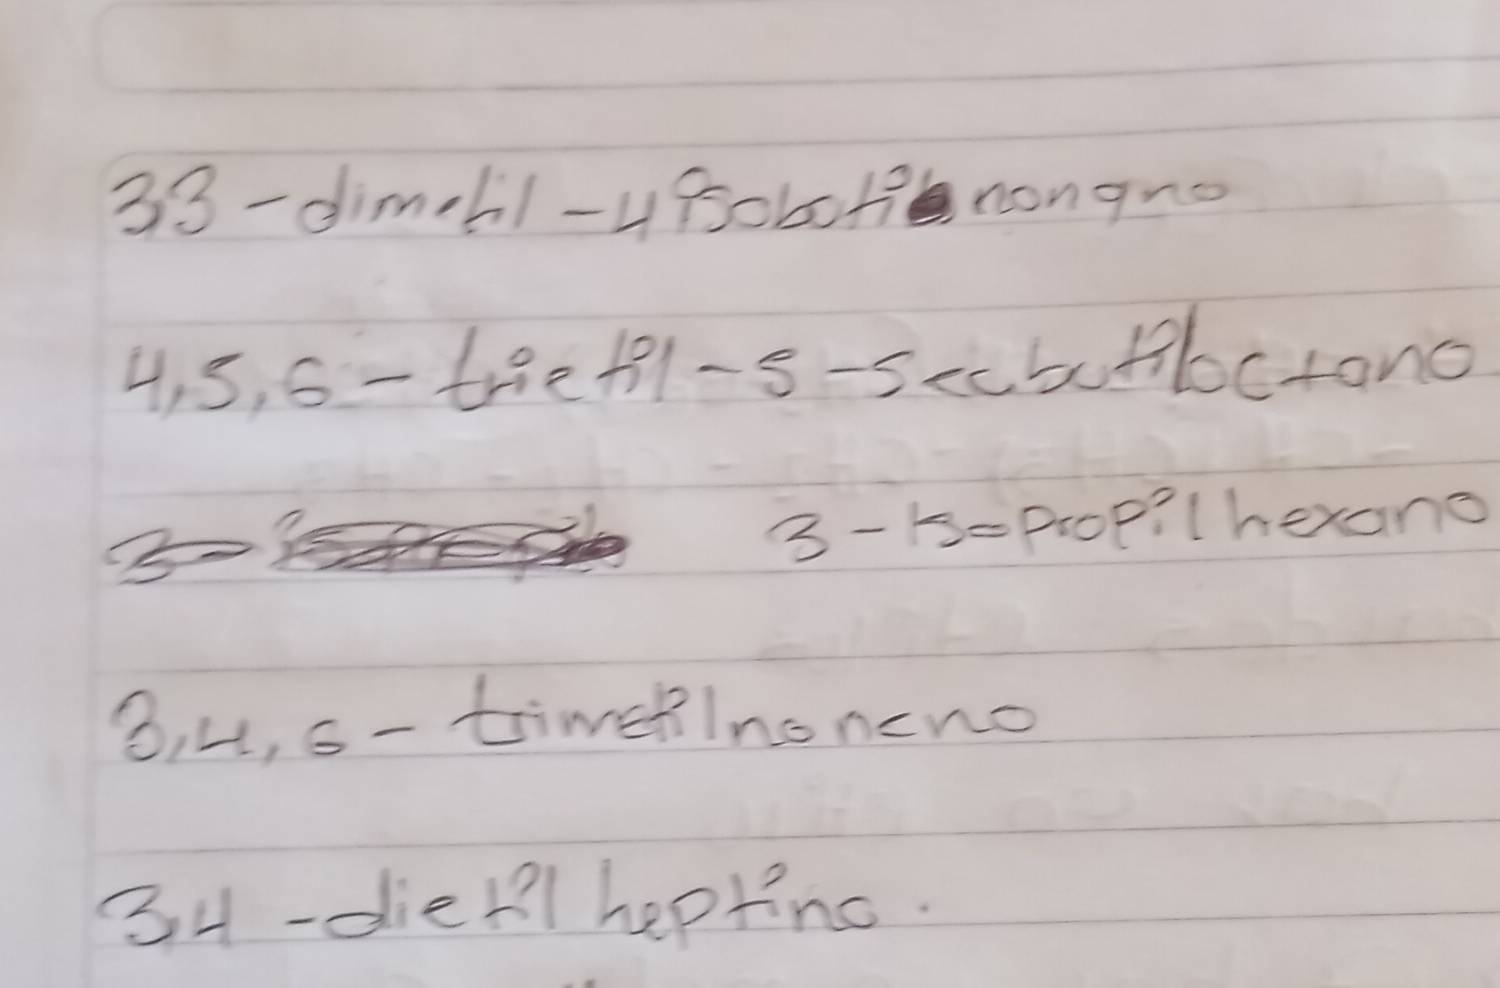 3,3-dimetil-4 isobutil nonano
4,5,6-trietil-5-secbutiloctano
3- 3-isopropil hexano
3,4,6-trimetilnoneno
3,4-dietil heptino.